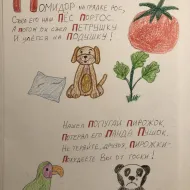 Помидор на грядке рос,
Съел его наш Пёс Портос.
А потом он съел Петрушку
И улёгся на Подушку!
Нашёл Попугай Пирожок,
Потерял его Панда Пушок.
Не теряйте, друзья, Пирожки-
Вы от тоски!